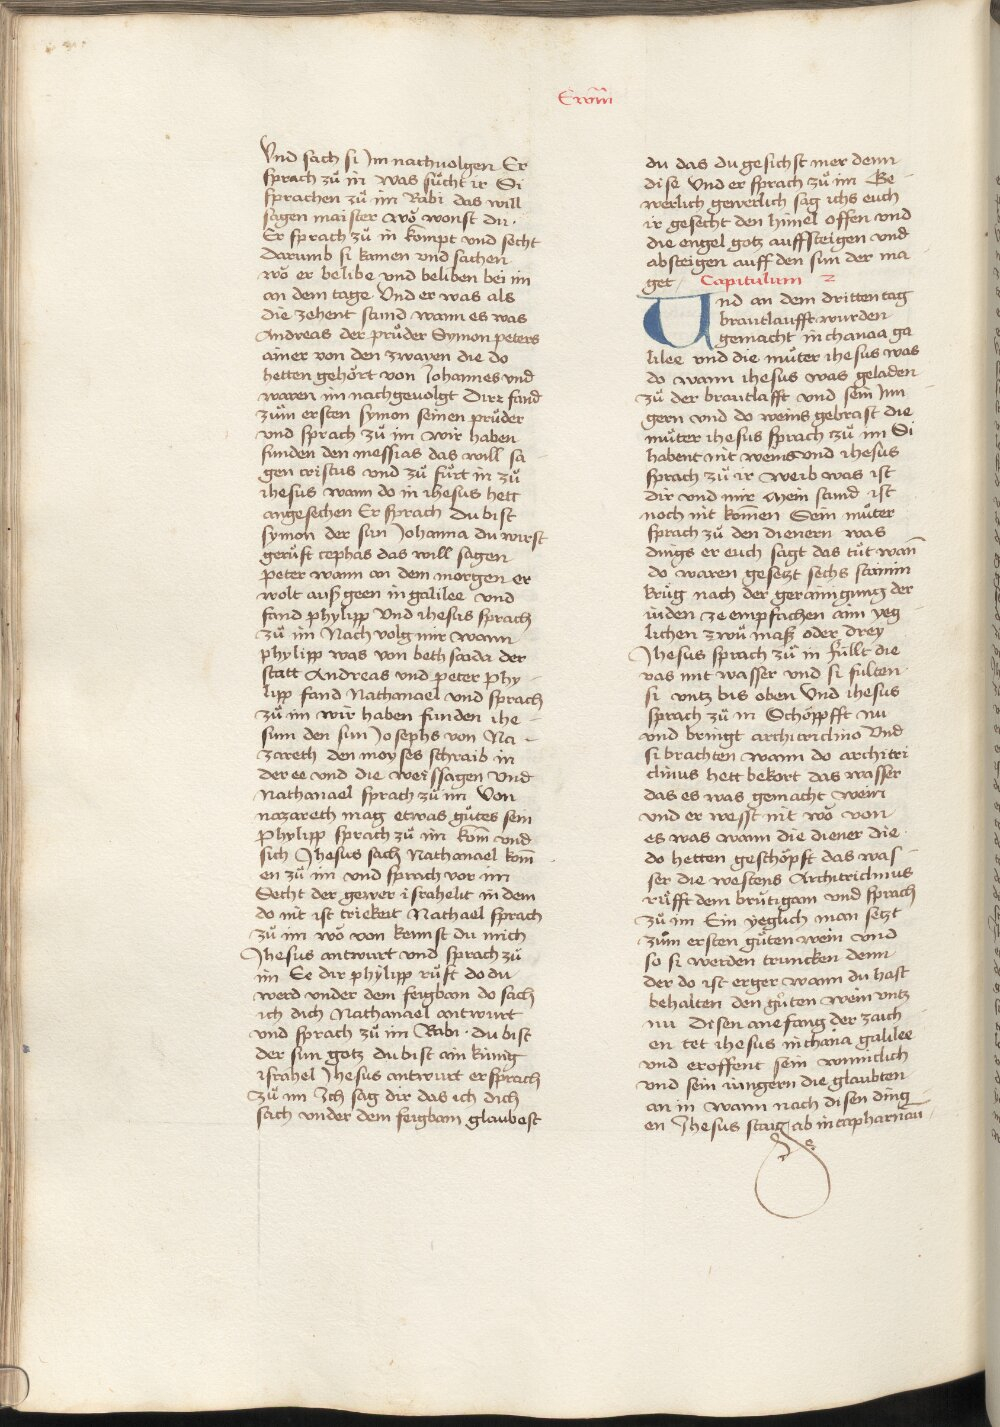 Ewm̄
Vnd sach si Im nachuolgen Er
sprach zů in was sůcht ir Si
sprachen zů im Rabi das will
sagen maister wo wonst du ·
Er sprach zů in kompt vnd secht
darumb si kamen vnd sachen
wo er belibe vnd beliben bei im
an dem tage Vnd er was als
die zehent stund wann es was
Andreas der průder Symon peters
ainer von den zwayen die do
hetten gehört von Johannes vnd
waren im nachgeuolgt Dirr fand
zům ersten symon seinen průder
vnd sprach zů im wir haben
funden den messias das will sa
gen cristus vnd zů fůrt in zů
ihesus wann do in ihesus hett
angesechen Er sprach du bist
symon der sun Johanna du wirst
gerůft cephas das will sagen
peter wann an dem morgen er
wolt auß geen in galilee vnd
fand phylipp Vnd ihesus sprach
zů im Nach volg mir wann
phylipp was von beth saida der
statt Andreas vnd peter phy-
lipp fand Nathanael vnd sprach
zů im wir haben funden ihe-
sum den sun Josephs von Na-
zareth den moyses schraib in
der ee vnd die weissagen Vnd
Nathanael sprach zů im Von
nazareth mag etwas gůtes sein
phylipp sprach zů im kom̄ vnd
sich Jhesus sach Nathanael kom̄
en zů im vnd sprach vor im
Secht der gewer israhelit in dem
do nit ist triekeit Nathael sprach
zů im wo von kennst du mich
Jhesus antwurt vnd sprach zů
im Ee dir phylipp růft do du
werd vnder dem feigbam do sach
ich dich Nathanael antwurt
vnd sprach zů im Rabi · du bist
der sun gotz du bist ain kunig
israhel Jhesus antwurt er sprach
zů im Ich sag dir das ich dich
sach vnder dem feigbam glaubest
du das du gesichst mer denn
dise Vnd er sprach zů im Ge-
werlich gewerlich sag ichs euch
ir gesecht den himel offen vnd
die engel gotz auffsteigen vnd
absteigen auff den sun der ma
get / Capitulum 2
Und an dem dritten tag
brautlaufft wurden
gemacht in chanaa ga
lilee vnd die můter ihesus was
do wann ihesus was geladen
zů der brautlafft vnd sein Jun
gern vnd do weins gebrast die
můter ihesus sprach zů im Si
habent nit weins vnd ihesus
sprach zů ir weib was ist
dir vnd mir mein stund ist
noch nit kom̄en Sein můter
sprach zů den dienern was
dings er euch sagt das tůt wan̄
do waren gesetzt sechs stainin
krůg nach der gerainigung der
iuden ze empfachen aim yeg
lichen zwů maß oder drey
Jhesus sprach zů in füllt die
vas mit wasser vnd si fulten
si vntz bis oben Vnd ihesus
sprach zů in Schöppfft nu
vnd bringt architriclino Vnd
si brachten wann do architri
clinus hett bekort das wasser
das es was gemacht wein
vnd er wesst nit wo von
es was wann die diener die
do hetten geschöpft das was-
ser die westens Architriclinus
růfft dem brůtigam vnd sprach
zů im Ein yeglich man setzt
zům ersten gůten wein vnd
so si werden truncken denn
der do ist erger wann du hast
behalten den gůten wein vntz
nu Disen anefang der zaich
en tet ihesus in chana galilee
vnd eroffent sein wunnlich
vnd sein iungern die glaubten
an in wann nach disen ding
en Jhesus staig ab in capharnau̅